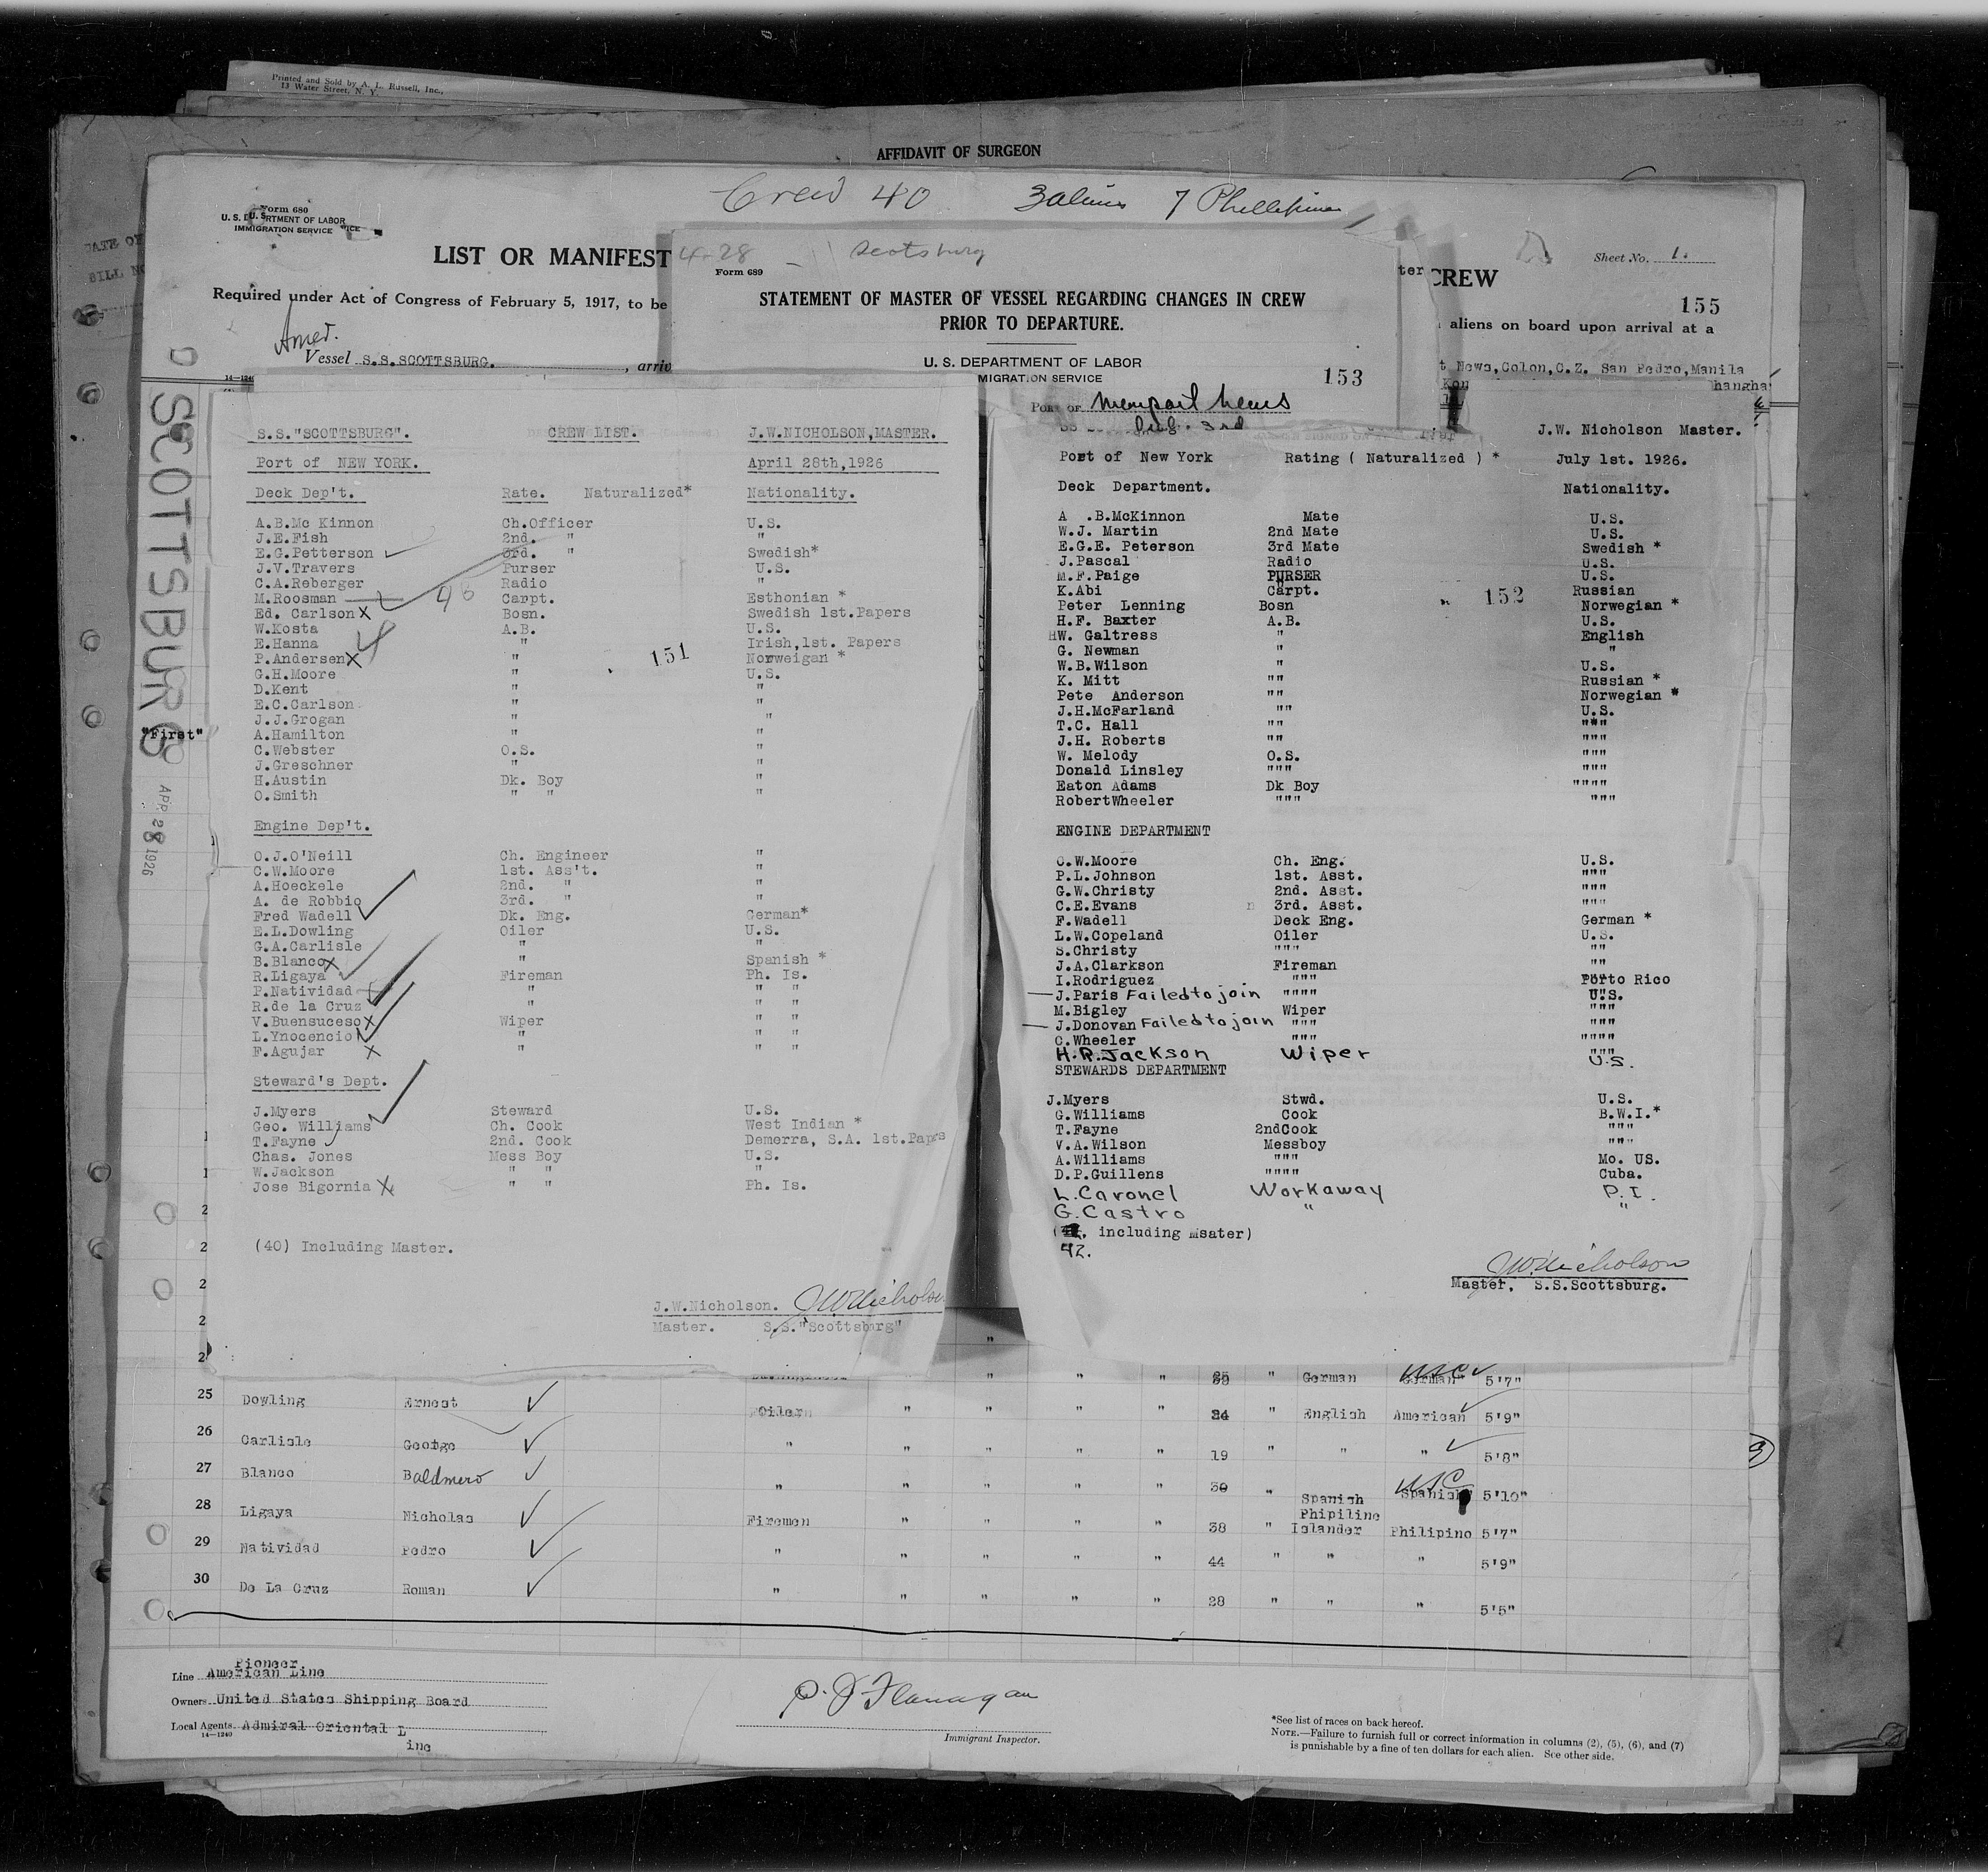 Printed and Sold by A. L. Russell, Inc.,
13 Water Street, N. Y.
AFFIDAVIT OF SURGEON
Crew 40 3 aliens 7 Phillipines
Form 680
U. S. DEPARTMENT OF LABOR
IMMIGRATION SERVICE
LIST OR MANIFEST
CREW
Sheet No. 1.
155
Required under Act of Congress of February 5, 1917, to be
aliens on board upon arrival at a
Amer.
Vessel S.S.SCOTTSBURG. , arriv
t News,Colon,C.Z. San Pedro,Manila
Kon
hanghai
14—1240
4-28 Scotsburg
Form 689
STATEMENT OF MASTER OF VESSEL REGARDING CHANGES IN CREW
PRIOR TO DEPARTURE.
U. S. DEPARTMENT OF LABOR
MIGRATION SERVICE
153
Port of Newport News
SCOTTSBURG
APR 28 1926
"First"
S.S."SCOTTSBURG". CREW LIST. J.W.NICHOLSON,MASTER.
Port of NEW YORK. April 28th,1926
Deck Dep't. Rate. Naturalized* Nationality.
A.B.Mc Kinnon Ch.Officer U.S.
J.E.Fish 2nd. " "
E.G.Petterson 3rd. " Swedish*
J.V.Travers Purser U.S.
C.A.Reberger Radio "
M.Roosman Carpt. Esthonian *
Ed. Carlson X Bosn. Swedish 1st.Papers
W.Kosta A.B. U.S.
E.Hanna " Irish,1st. Papers
P.Andersen X " Norweigan *
151
G.H.Moore " U.S.
D.Kent " "
E.C.Carlson " "
J.J.Grogan " "
A.Hamilton " "
C.Webster O.S. "
J.Greschner " "
H.Austin Dk. Boy "
O.Smith " " "
Engine Dep't.
O.J.O'Neill Ch. Engineer "
C.W.Moore 1st. Ass't. "
A.Hoeckele 2nd. " "
A. de Robbio 3rd. " "
Fred Wadell Dk. Eng. German*
E.L.Dowling Oiler U.S.
G.A.Carlisle " "
B.Blanco X " Spanish *
R.Ligaya Fireman Ph. Is.
P.Natividad " " "
R.de la Cruz " " "
V.Buensuceso X Wiper " "
L.Ynocencio " " "
F.Agujar X " " "
Steward's Dept.
J.Myers Steward U.S.
Geo. Williams Ch. Cook West Indian *
T.Fayne 2nd. Cook Demerra, S.A. 1st.Paprs
Chas. Jones Mess Boy U.S.
W.Jackson " " "
Jose Bigornia X " " Ph. Is.
(40) Including Master.
J.W.Nicholson. JWNicholson
Master. S.S."Scottsburg"
J.W. Nicholson Master.
Port of New York Rating ( Naturalized ) * July 1st. 1926.
Deck Department. Nationality.
A .B.McKinnon Mate U.S.
W.J. Martin 2nd Mate U.S.
E.G.E. Peterson 3rd Mate Swedish *
J.Pascal Radio U.S.
M.F.Paige PURSER U.S.
K.Abi Carpt. Russian
152
Peter Lenning Bosn Norwegian *
H.F. Baxter A.B. U.S.
HW. Galtress " English
G. Newman " "
W.B.Wilson " U.S.
K. Mitt "" Russian *
Pete Anderson "" Norwegian *
J.H.McFarland "" U.S.
T.C. Hall "" """
J.H. Roberts "" """
W. Melody O.S. """
Donald Linsley """ """
Eaton Adams Dk Boy """"
RobertWheeler """ """
ENGINE DEPARTMENT
C.W.Moore Ch. Eng. U.S.
P.L.Johnson 1st. Asst. """
G.W.Christy 2nd. Asst. """
C.E.Evans 3rd. Asst. """
F.Wadell Deck Eng. German *
L.W.Copeland Oiler U.S.
S.Christy """ ""
J.A.Clarkson Fireman ""
I.Rodriguez """ Porto Rico
J.Paris Failed to join """" U.S.
M.Bigley Wiper """
J.Donovan Failed to join """ """
C.Wheeler """ """"
H.R.Jackson Wiper U.S.
STEWARDS DEPARTMENT
J.Myers Stwd. U.S.
G.Williams Cook B.W.I.*
T.Fayne 2ndCook """
V.A.Wilson Messboy """
A.Williams """ Mo. US.
D.P.Guillens """" Cuba.
L.Caronel Workaway P.I.
G.Castro " "
including msater)
42.
JWNicholson
Master, S.S.Scottsburg.
German 5'7"
25 Dowling Ernest Oiler " " " " 24 " English American 5'9"
26 Carlisle George " " " " " 19 " " " 5'8"
27 Blanco Baldmero " " " " " 30 " Spanish Spanish USC 5'10"
28 Ligaya Nicholas Firemen " " " " 38 " Phipiline Islander Philipino 5'7"
29 Natividad Pedro " " " " " 44 " " " 5'9"
30 De La Cruz Roman " " " " " 28 " " " 5'5"
Pioneer
Line American Line
Owners United States Shipping Board
Local Agents Admiral Oriental L
ine
14—1240
P. J Flanagan
Immigrant Inspector.
*See list of races on back hereof.
NOTE.—Failure to furnish full or correct information in columns (2), (5), (6), and (7)
is punishable by a fine of ten dollars for each alien. See other side.